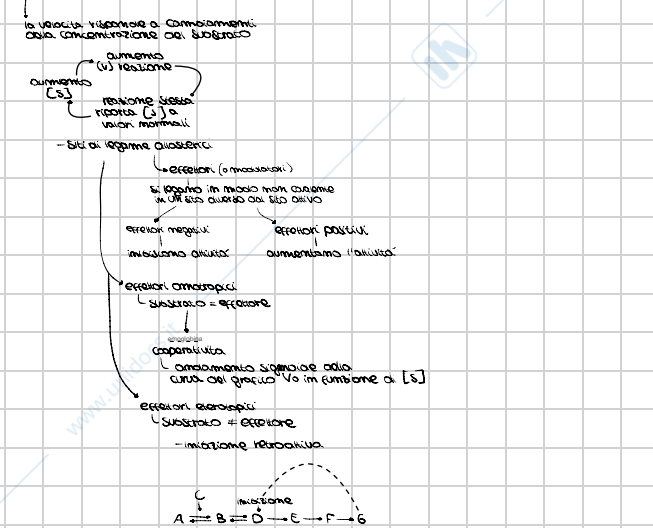 la velocità risponde a cambiamenti
della concentrazione del substrato
aumento
(v) reazione
aumento
[S]
reazione stessa
riporta [S] a
valori normali
- siti di legame allosterici
effettori (o modulatori)
si legano in modo non covalente
in un sito diverso dal sito attivo
effettori negativi
effettori positivi
inibiscono attività
aumentano l'attività
effettori omotropici
substrato = effettore
cooperatività
andamento sigmoide della
curva del grafico V0 in funzione di [S]
effettori eterotropici
substrato ≠ effettore
- inibizione retroattiva
C
inibizione
A ⇌ B ⇌ D → E → F → G
www.unidocs.it